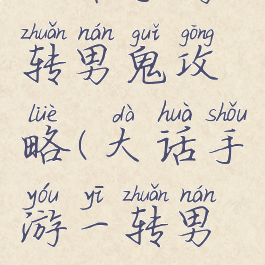 zhuǎn nán guǐ gōng
转男鬼攻
lüè dà huà shǒu
略(大话手
yóu yī zhuǎn nán
游一转男